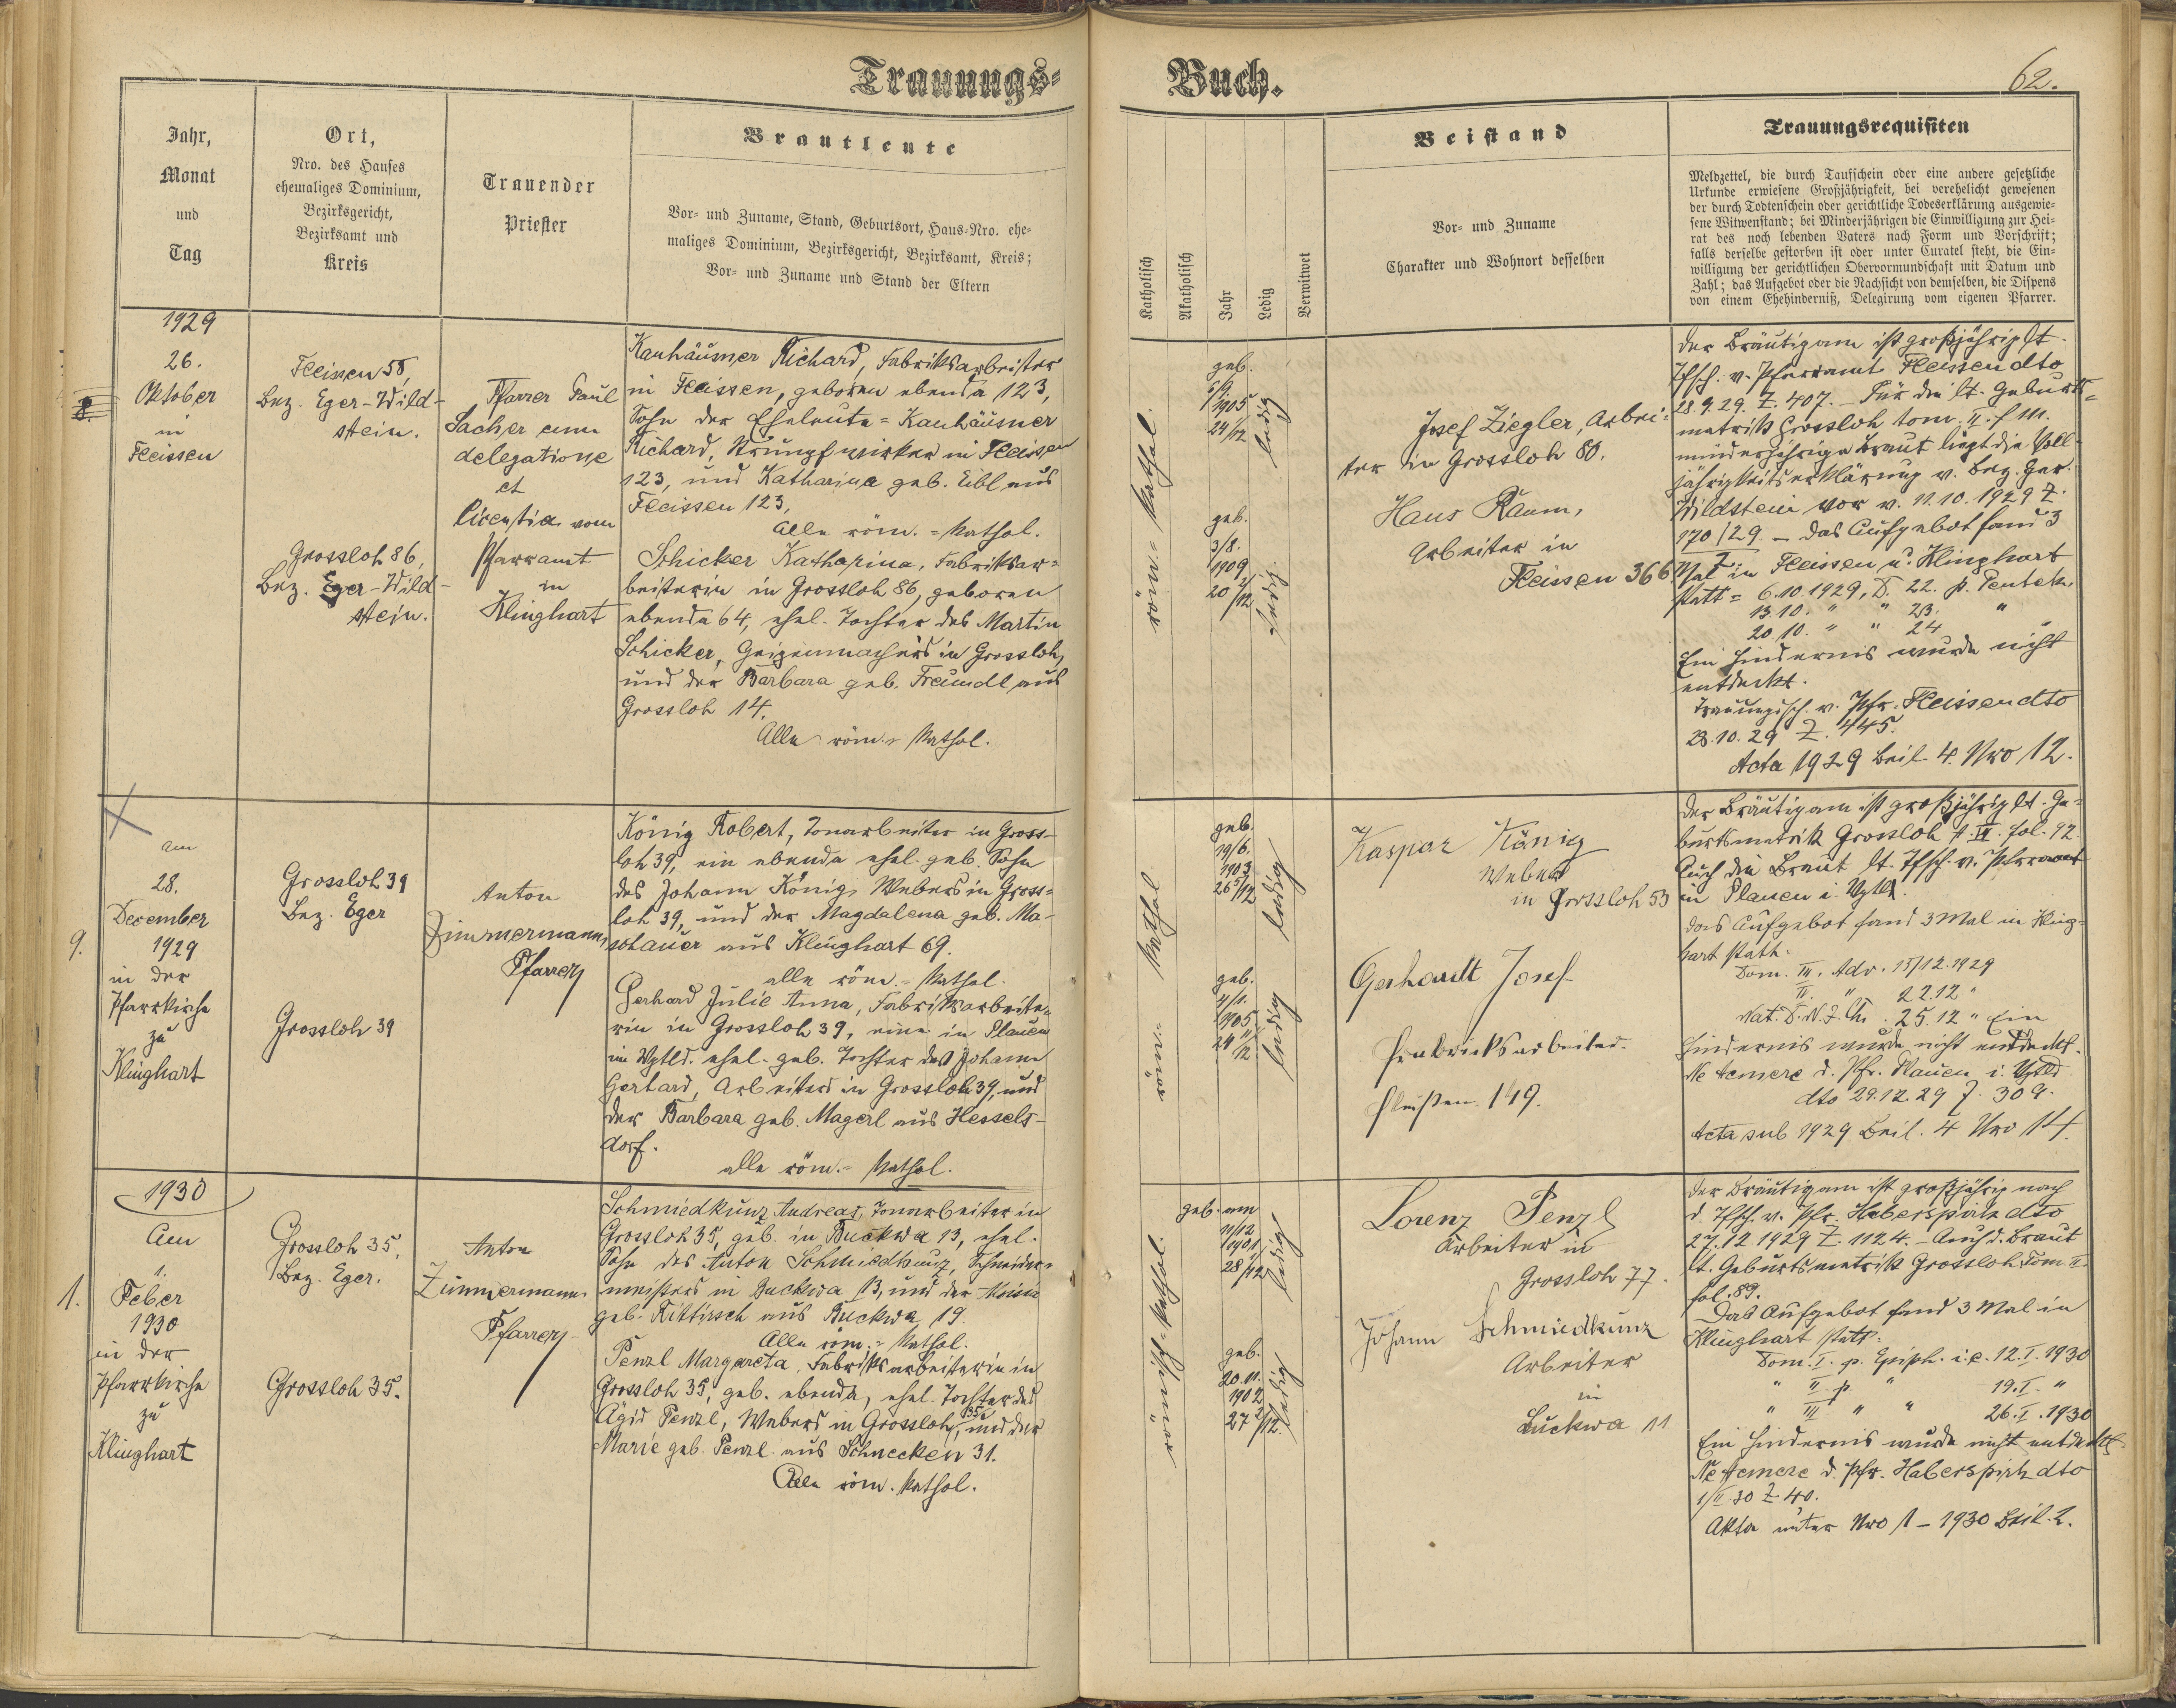 Trauungs=
Buch.
62.
Jahr,
Monat
und
Tag
Ort,
Nro. des Hauses
ehemaliges Dominium,
Bezirksgericht,
Bezirksamt und
Kreis
Trauender
Priester
Brautleute
Vor- und Zuname, Stand, Geburtsort, Haus-Nro. ehe-
maliges Dominium, Bezirksgericht, Bezirksamt, Kreis;
Vor- und Zuname und Stand der Eltern
Katholisch
Akatholisch
Jahr
Ledig
Verwitwet
Beistand
Vor- und Zuname
Charakter und Wohnort desselben
Trauungsrequisiten
Meldzettel, die durch Taufschein oder eine andere gesetzliche
Urkunde erwiesene Großjährigkeit, bei verehelicht gewesenen
der durch Todtenschein oder gerichtliche Todeserklärung ausgewie-
sene Witwenstand; bei Minderjährigen die Einwilligung zur Hei-
rat des noch lebenden Vaters nach Form und Vorschrift;
falls derselbe gestorben ist oder unter Curatel steht, die Ein-
willigung der gerichtlichen Obervormundschaft mit Datum und
Zahl; das Aufgebot oder die Nachsicht von demselben, die Dispens
von einem Ehehinderniß, Delegirung vom eigenen Pfarrer.
1929
26.
Oktober
in
Fleissen
8.
Fleissen 58,
Bez. Eger-Wild-
stein.
Grossloh 86,
Bez. Eger-Wild-
stein.
Pfarrer Paul
Sacher cum
delegatione
et
licentia vom
Pfarramt
in
Klinghart
Kauhäusner Richard, Fabriksarbeiter
in Fleissen, geboren ebenda 123,
Sohn der Eheleute = Kauhäusner
Richard, Strumpfwirker in Fleissen
123, und Katharina geb. Eibl aus
Fleissen 123,
Alle röm.=kathol.
Schicker Katharina, Fabriksar=
beiterin in Grossloh 86, geboren
ebenda 64, ehel. Tochter des Martin
Schicker, Geigenmachers in Grossloh,
und der Barbara geb. Freundl, aus
Grossloh 14.
Alle röm.- kathol.
röm.= kathol.
geb.
6/9
1905
24/12
ledig
geb.
3/8.
1909
20 2/12
ledig.
Josef Ziegler, Arbei-
ter in Grossloh 80.
Hans Raum,
Arbeiter in
Fleissen 366.
Der Bräutigam ist großjährig lt.
Tfsch. v. Pfarramt Fleissen dto
28.9.29. Z. 407. - Für die lt. Geburts=
matrik Grossloh tom. II. f. 111.
minderjährige Braut liegt die Voll-
jährigkeitserklärung v. Bez. Ger.
Wildstein vor v. 11.10.1929 Z.
170/29. - Das Aufgebot fand 3
Mal in Fleissen u. Klinghart
statt = 6.10.1929, D. 22. p. Pentek.
13.10. " " 23. "
20.10. " " 24 "
Ein Hindernis wurde nicht
entdeckt.
Trauungssch. v. Pfr. Fleissen dto
28.10.29 Z. 445.
Acta 1929 Beil. 4. Nro 12.
9.
am
28.
December
1929
in der
Pfarrkirche
zu
Klinghart
Grossloh 39
Bez. Eger
Grossloh 39
Anton
Zimmermann,
Pfarrer
König Robert, Tonarbeiter in Gross-
loh 39, ein ebenda ehel. geb. Sohn
des Johann König, Webers in Gross=
loh 39, und der Magdalena geb. Ma-
schauer aus Klinghart 69.
alle röm.= kathol.
Gerhard Julie Anna, Fabriksarbeite-
rin in Grossloh 39, eine in Plauen
im Vgtld. ehel. geb. Tochter des Johann
Gerhard, Arbeiters in Grossloh 39, und
der Barbara geb. Magerl aus Hessels-
dorf.
alle röm.= kathol.
röm.= kathol
geb.
19/6.
1903
26 5/12
ledig
geb.
4/1.
1905
24 11/12
ledig
Kaspar König
Weber
in Grossloh 53
Gerhardt Josef
Frabricksarbeiter.
Fleißen 149.
Der Bräutigam ist großjährig lt. Ge-
burtsmatrik Grossloh t. II. fol. 92.
Auch die Braut lt. Tfsch. v. Pfarramt
in Plauen i. Vgtld.
Das Aufgebot fand 3 Mal in Kling=
hart statt:
Dom. III. Adv. 15/12.1929
" 22.12 "
Nat. D. N. J. Chr. 25.12 " Ein
Hindernis wurde nicht entdeckt.
Ne temere d. Pfr. Plauen i. Vgtld
dto 29.12.29 Z. 309.
Acta sub 1929 Beil. 4 Nro 14.
1930
1.
Am
1.
Feber
1930
in der
Pfarrkirche
zu
Klinghart
Grossloh 35,
Bez. Eger.
Grossloh 35.
Anton
Zimmermann
Pfarrer
Schmiedkunz Andreas, Tonarbeiter in
Grossloh 35, geb. in Buckwa 13, ehel.
Sohn des Anton Schmiedkunz, Schneider=
meisters in Buckwa 13, und der Maria
geb. Rittirsch aus Buckwa 19.
Alle röm.= kathol.
Penzl Margareta, Fabriksarbeiterin in
Grossloh 35, geb. ebenda, ehel. Tochter des
Ägid Penzl, Webers in Grossloh 35, und der
Marie geb. Penzl aus Schnecken 31.
Alle röm. kathol.
römisch-kathol.
geb. am
11/12
1901
28 1/12
ledig
geb.
20.11.
1902
27 2/12
ledig
Lorenz Penzl
Arbeiter in
Grossloh 77.
Johann Schmiedkunz
Arbeiter
in
Buckwa 11
Der Bräutigam ist großjährig nach
d. Tfsch. v. Pfr. Haberspirk dto
27.12.1929 Z. 1124. - Auch d. Braut
lt. Geburtsmatrik Grossloh Tom. II
fol. 89.
Das Aufgebot fand 3 Mal in
Klinghart statt:
Dom. I. p. Epiph. i.e. 12.I.1930
" II p. " 19.I. "
" III " " 26.I.1930
Ein Hindernis wurde nicht entdeckt.
Ne temere d. Pfr. Haberspirk dto
1/II 30 Z 40.
Akta unter Nro 1 - 1930 Beil. 2.